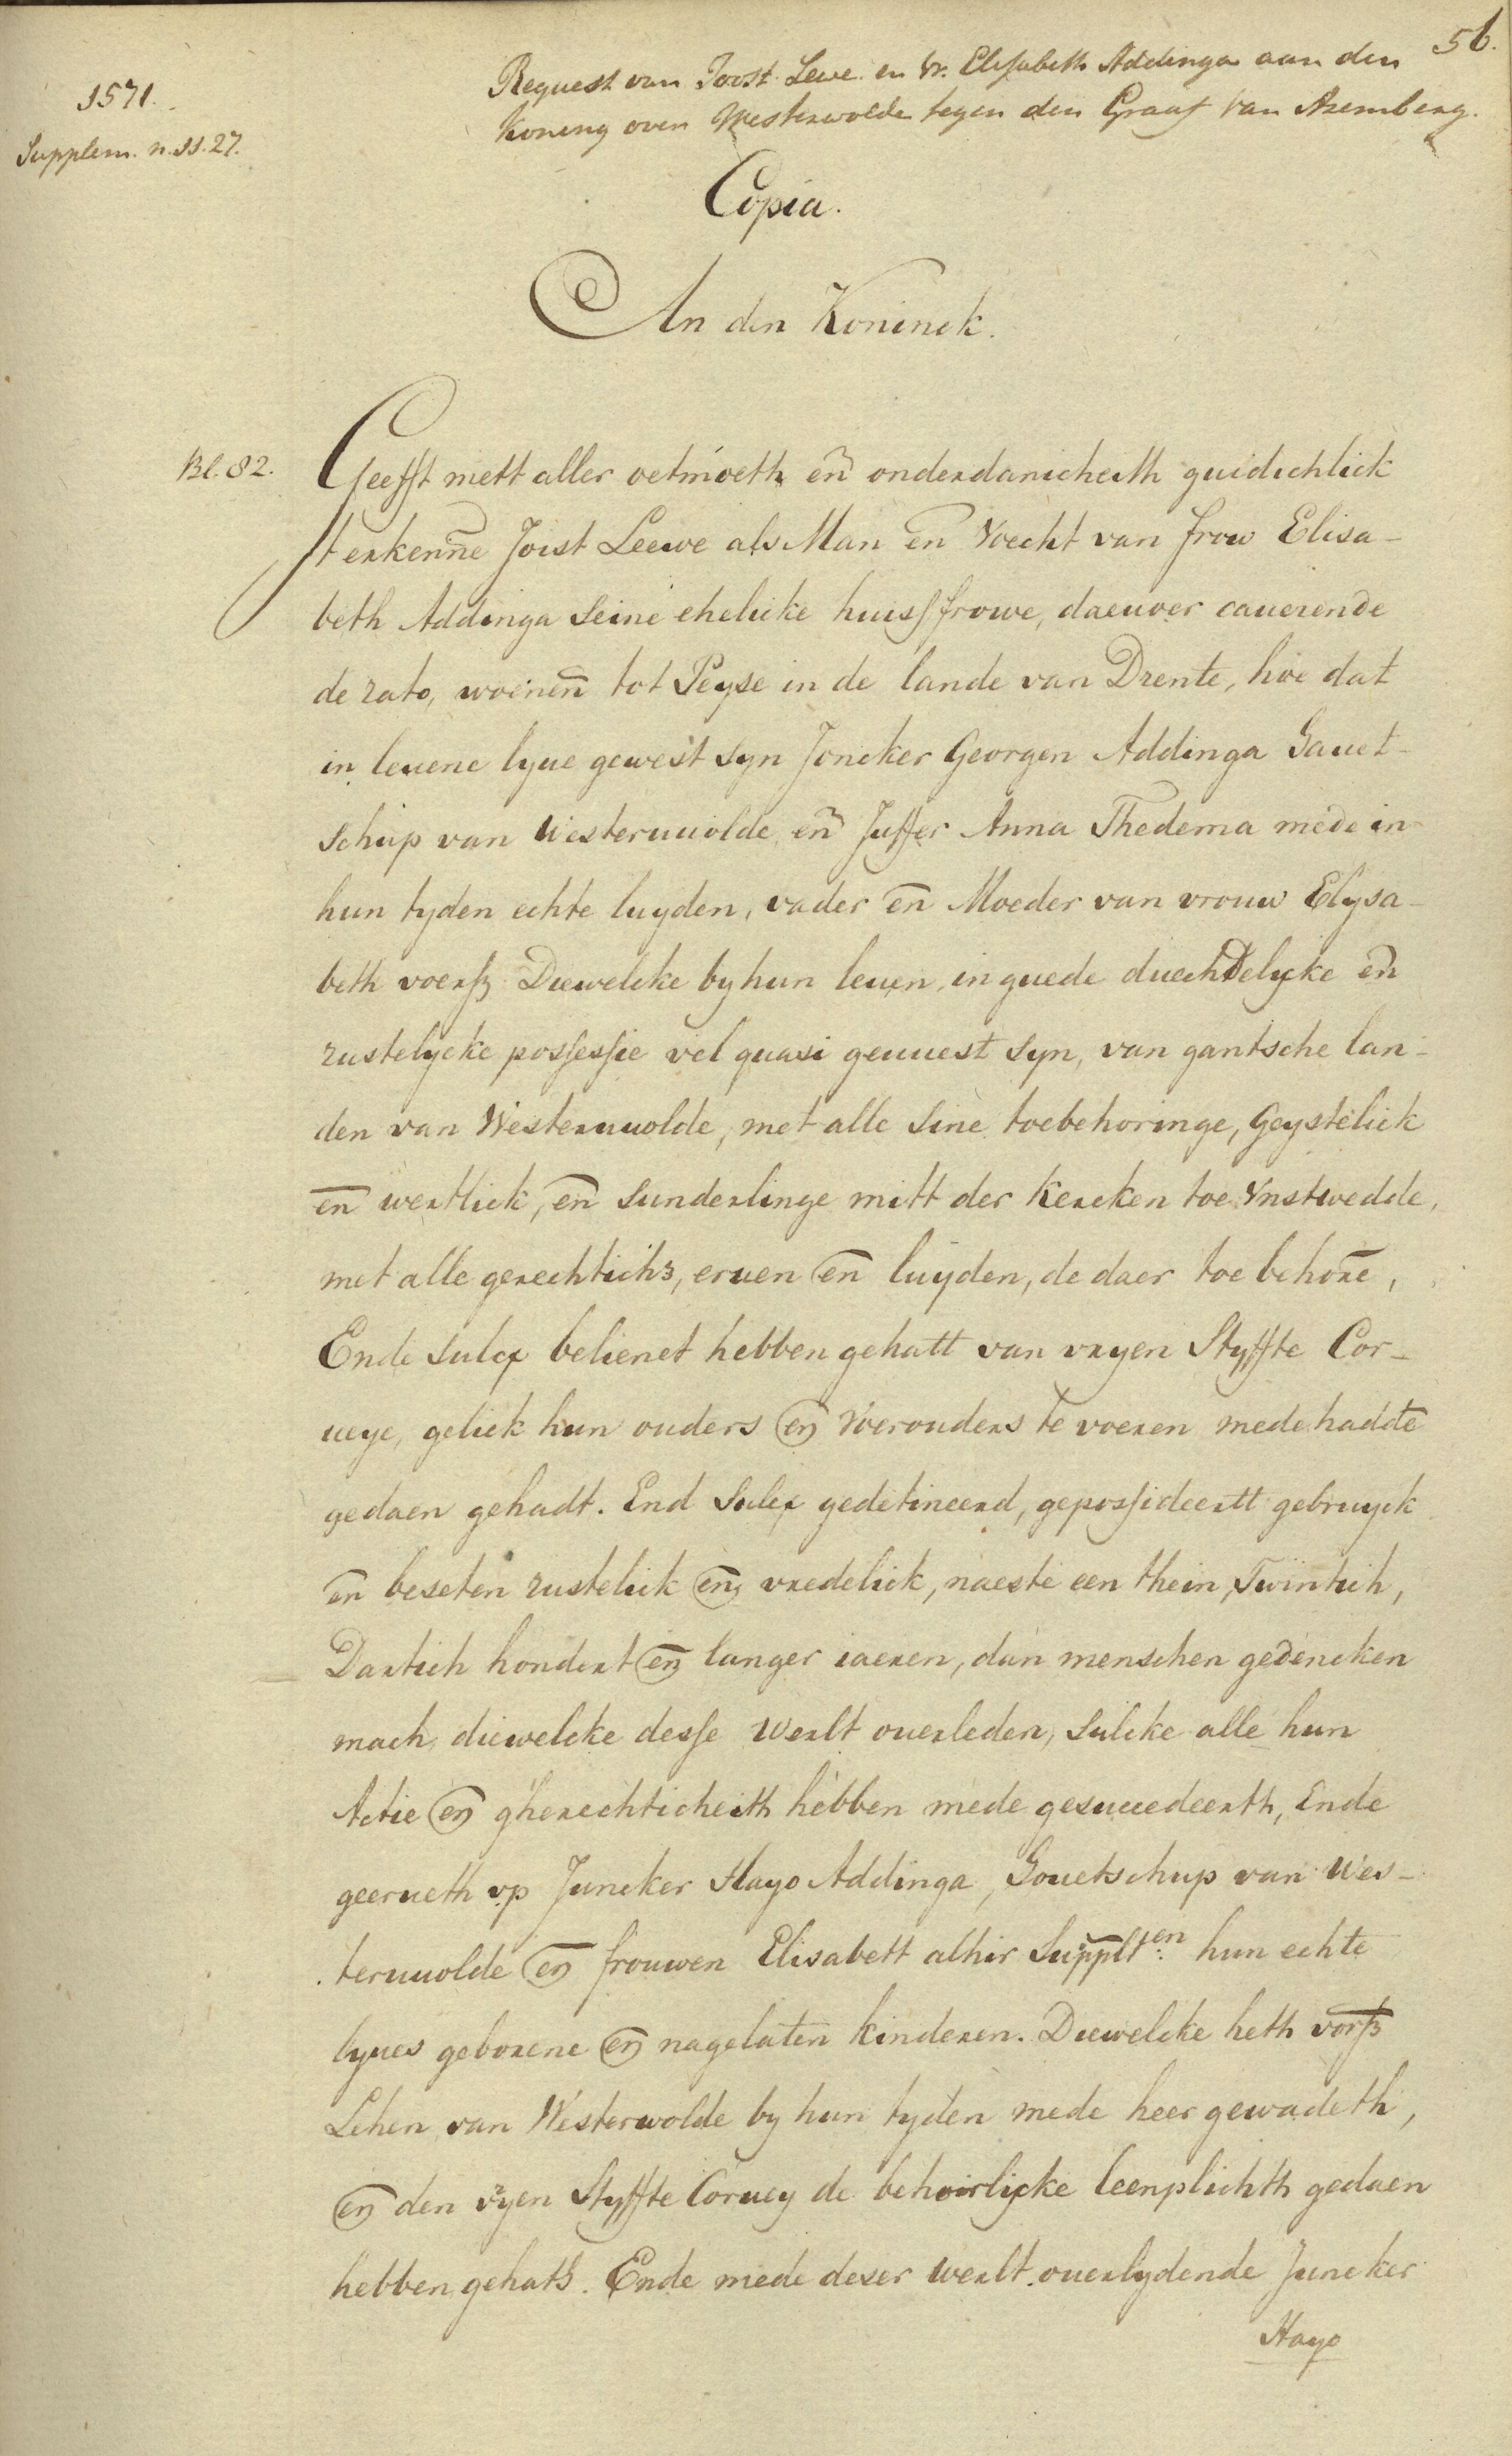 56.
1571.
Supplem. n. 11.27.
Request van Joost Lewe en Vr. Elisabeth Addinga aan den
Koning over Westerwolde tegen den Graaf van Aremberg.
Copia.
An den Koninck.
Bl. 82.
Geefft mett aller oetmoeth en̄ onderdanicheith guidichlick
t erkenne Joist Leewe als Man en̄ Voecht van frow Elisa-
beth Addinga Seine ehelicke huisffrowe, daeuoer cauerende
de rato, woenen̄ tot Peyse in de lande van Drente, hoe dat
in leuene lyue gewest syn Joncker Georgen Addinga Gauet-
schup van Westerwuolde en̄ Juffer Anna Thedema mede in
hun tyden echte luyden, vader en̄ Moeder van vrouw Elysa-
beth voerß Diewelcke by hun leuen, in guede duechdelycke en̄
rustelycke possessie vel quasi geuuest syn, van gantsche lan-
den van Westeruuolde, met alle sine toebehoringe, Geystelick
en̄ wertlick, en̄ sunderlinge mitt der Kercken toe Vnstwedde,
met alle gerechtichs, eruen en̄ luyden, de daer toe behore̅,
Ende sulcx belienet hebben gehatt van vryen Styffte Cor-
ueye, geliek hun ouders en̄ Voerouders te voeren mede hadde̅
gedaen gehadt. End Sulcx gedetineerd, gepossideertt gebruyck
en̄ beseten rustelick en̄ vredelick, naeste een thein, Twintich,
Dartich hondert en̄ langer iaeren, dan menschen gedencken
mach, diewelcke desse Werlt ouerleden, Sulcke alle hun
Actie en̄ gherechticheith hebben mede gesuccedeerth, Ende
geerueth vp Juncker Hayo Addinga, Gouetschup van Wes-
teruuolde en̄ frouwen Elisabett alhir Supplten hun echte
lyues geborene en̄ nagelaten kinderen. Diewelcke heth vorß
Lehen van Westerwolde by hun tyden mede heer gewadeth,
en̄ den vyen Styffte Coruey de behoirlijcke leenplichth gedaen
hebben gehath. Ende mede deser werlt ouerlydende Juncker
Hayo